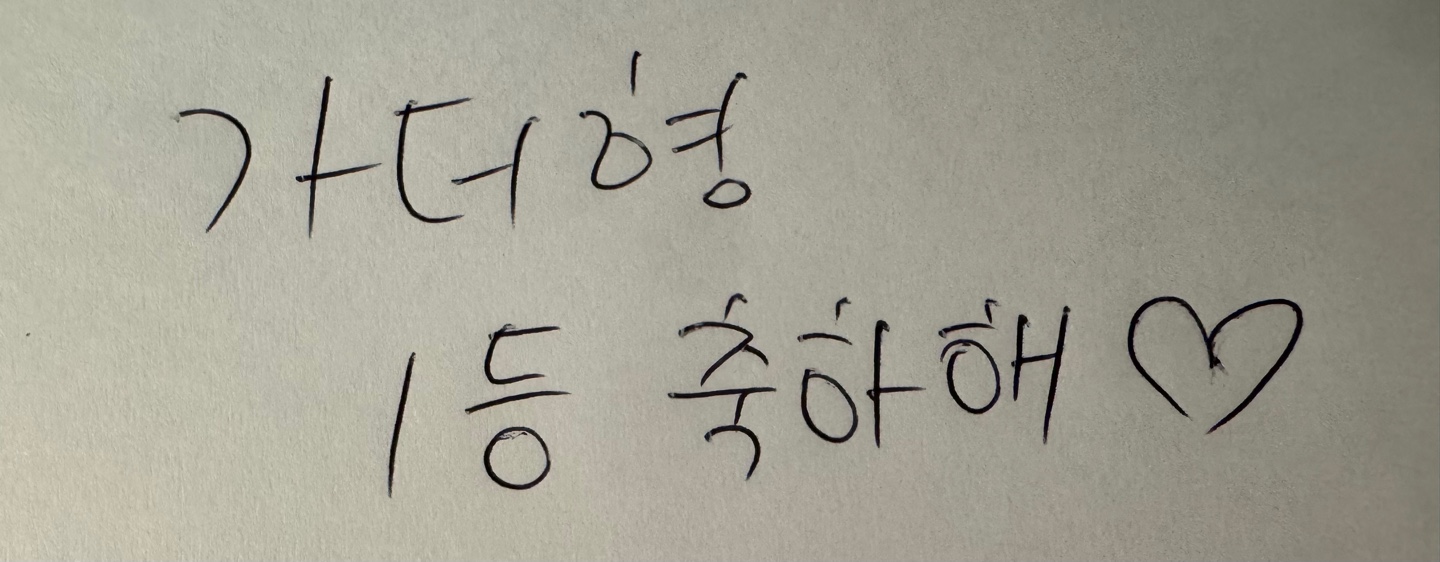 가더형
1등 축하해♡